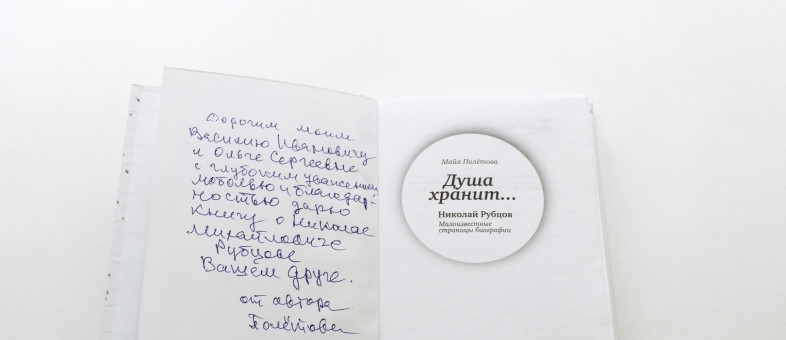 Дорогим моим
Василию Ивановичу
и Ольге Сергеевне
с глубоким уважением,
любовью и благодар-
ностью дарю
книгу о Николае
Михайловиче
Рубцове
Вашем друге.
от автора
Полётова
Майя Полётова
Душа
хранит...
Николай Рубцов
Малоизвестные
страницы биографии